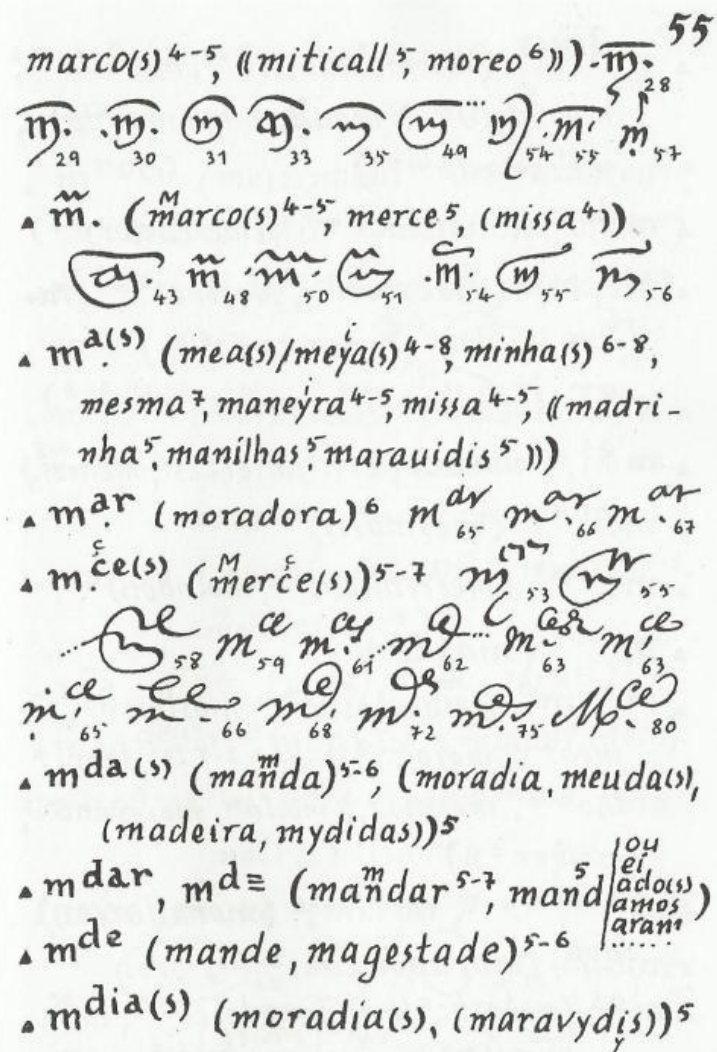 55
marco(s)⁴⁻⁵, ((miticall⁵, moreo⁶))) m̅. 28
m. 29 .m. 30 m 31 m. 33 m 35 m 49 m 54 .m. 55 m 57
▴ m̃. (marco(s)⁴⁻⁵, merce⁵, (missa⁴))
m. 43 m̃ 48 .m̃. 50 m̃ 51 .m. 54 m 55 m 56
▴ m.ᵃ⁽ˢ⁾ (mea(s)/meya(s)⁴⁻⁸, minha(s)⁶⁻⁸,
mesma⁷, maneyra⁴⁻⁵, missa⁴⁻⁵, ((madri-
nha⁵, manilhas⁵, marauidis⁵)))
▴ m.ᵃʳ (moradora)⁶ mᵃʳ 65 m.ᵃʳ 66 m.ᵃʳ 67
▴ m.ce(s) (merce(s))⁵⁻⁷ m 53 m 55
m 58 mce 59 m.ces 61 m 62 m.ces 63 m.ce 63
m.ce 65 m 66 m.ce 68 m. 72 m. 75 M.ce 80
▴ mda(s) (manda)⁵⁻⁶, (moradia, meuda(s),
(madeira, mydidas))⁵
▴ mdar, md≡ (mandar⁵⁻⁷, mand⁵ | ou
ei
ado(s) )
amos
aram
......
▴ mde (mande, magestade)⁵⁻⁶
▴ mdia(s) (moradia(s), (maravydis))⁵